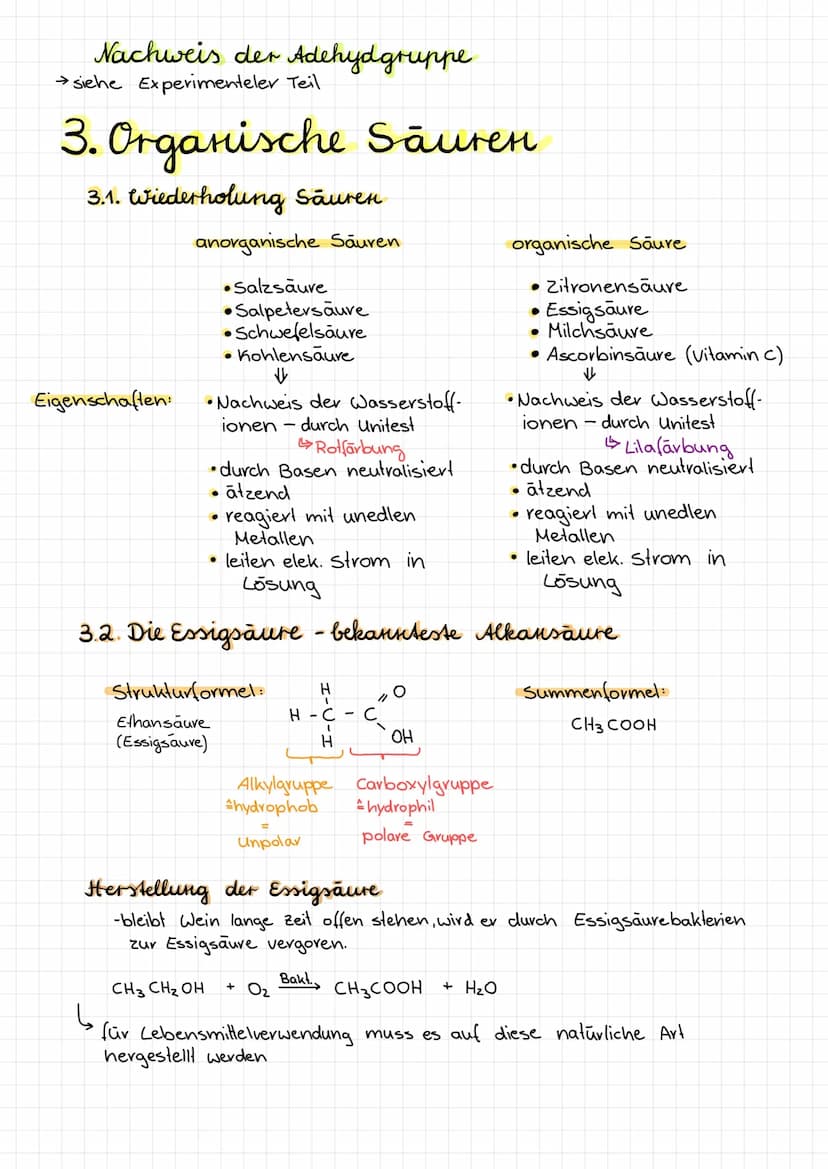 Nachweis der Adehydgruppe
→ siehe Experimenteler Teil
3. Organische Säuren
3.1. Wiederholung Säuren
anorganische Säuren
• Salzsäure
• Salpetersäure
• Schwefelsäure
• Kohlensäure
⇓
organische Säure
• Zitronensäure
• Essigsäure
• Milchsäure
• Ascorbinsäure (Vitamin C)
⇓
Eigenschaften:
• Nachweis der Wasserstoff-
ionen – durch Unitest
↳ Rotfärbung
• durch Basen neutralisiert
• ätzend
• reagiert mit unedlen
Metallen
• leiten elek. Strom in
Lösung
• Nachweis der Wasserstoff-
ionen – durch Unitest
↳ Lilafärbung
• durch Basen neutralisiert
• ätzend
• reagiert mit unedlen
Metallen
• leiten elek. Strom in
Lösung
3.2. Die Essigsäure - bekannteste Alkansäure
Strukturformel:
Ethansäure
(Essigsäure)
H
H - C - C
O
OH
H
Alkylgruppe
≙ hydrophob
=
unpolar
Carboxylgruppe
≙ hydrophil
=
polare Gruppe
Summenformel:
CH3COOH
Herstellung der Essigsäure
- bleibt Wein lange Zeit offen stehen, wird er durch Essigsäurebakterien
zur Essigsäure vergoren.
CH3CH2OH + O2 Bakt.→ CH3COOH + H2O
↳ für Lebensmittelverwendung muss es auf diese natürliche Art
hergestellt werden